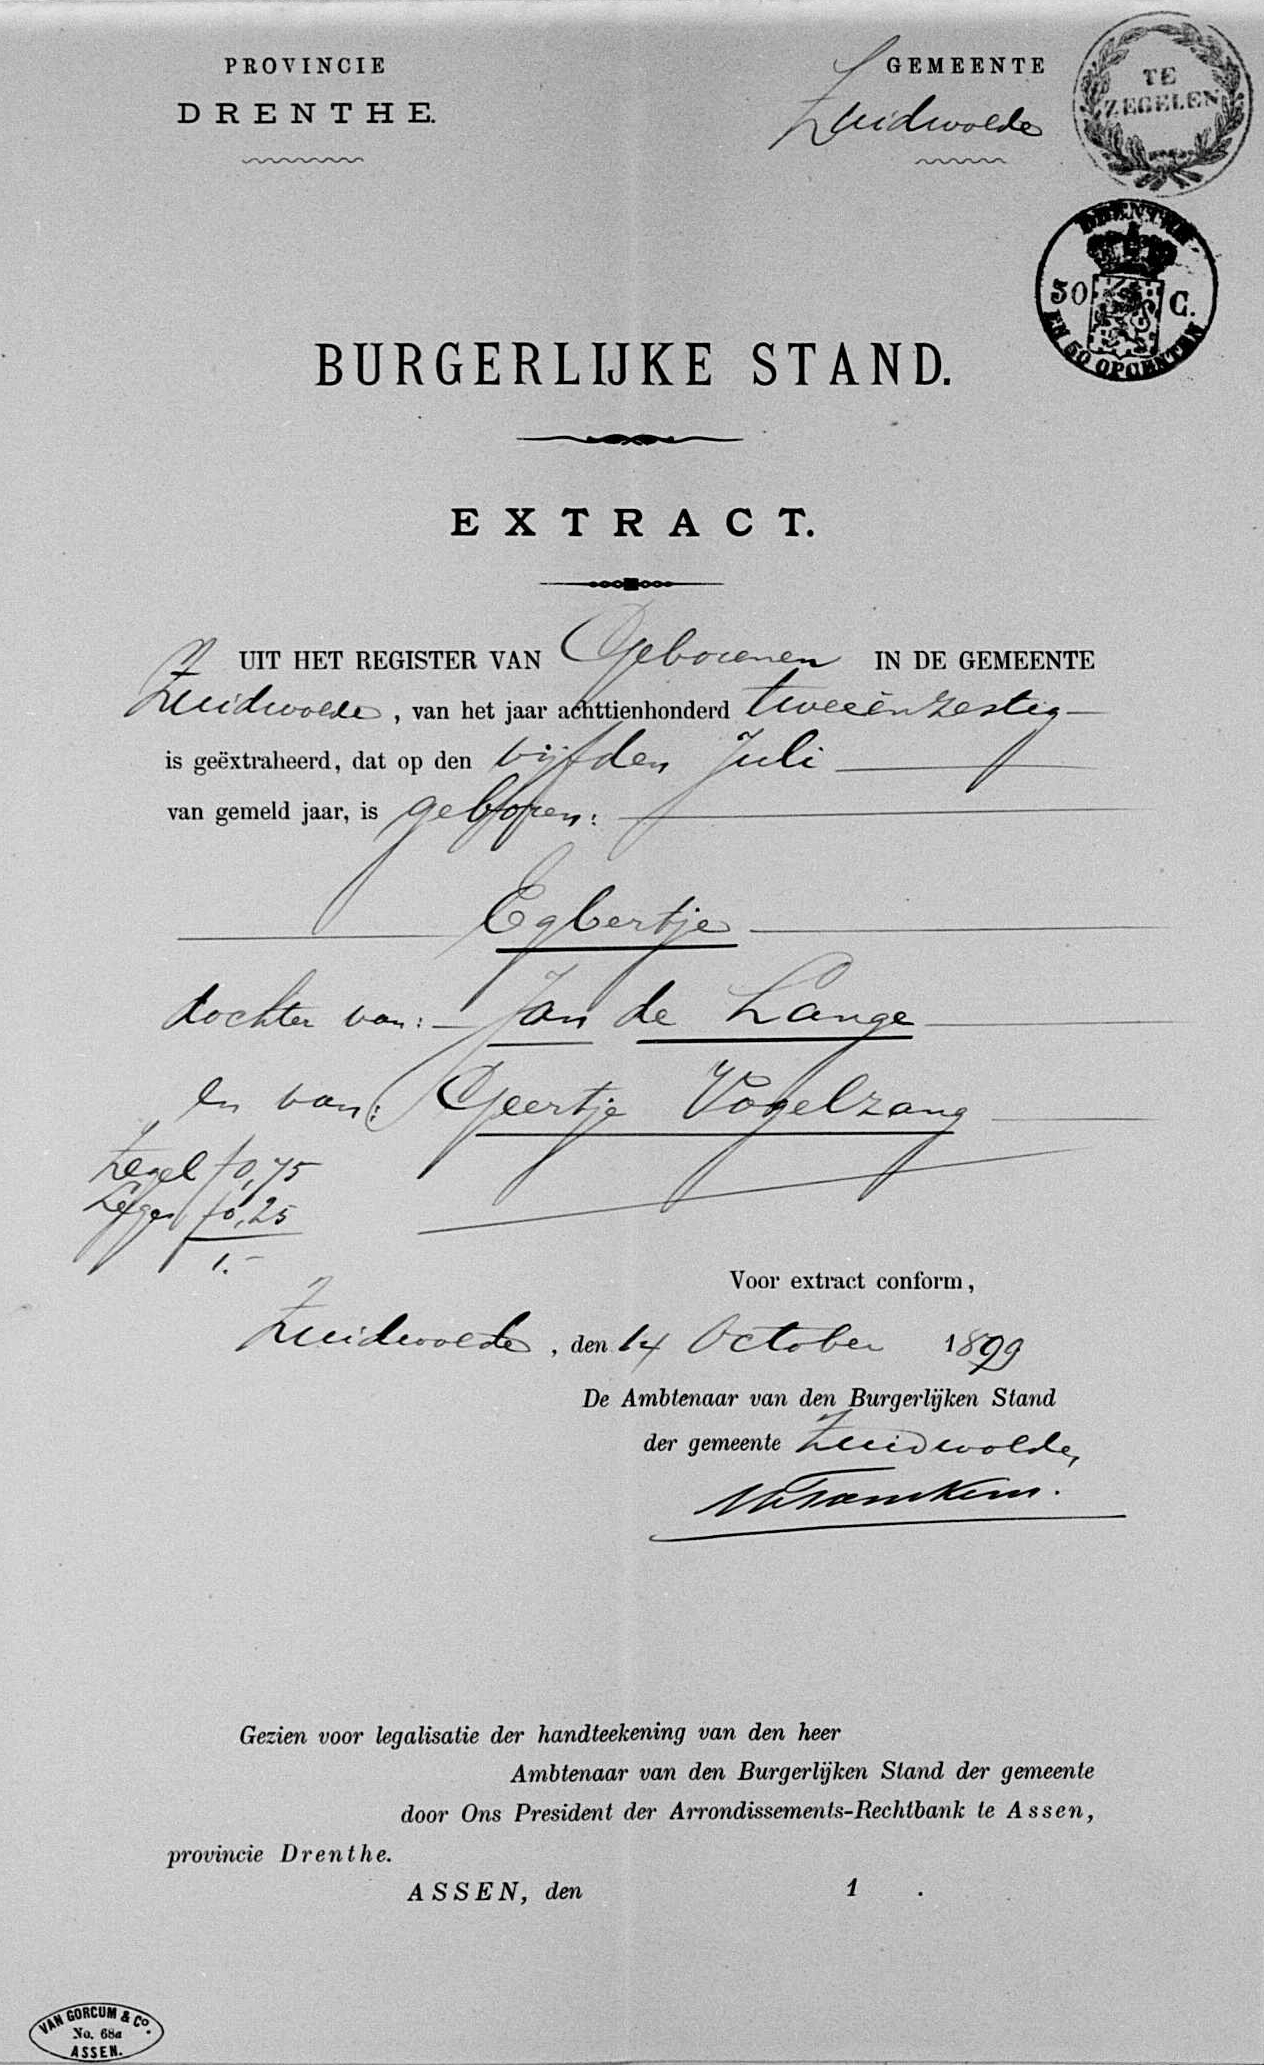 PROVINCIE
DRENTHE.
GEMEENTE
Zuidwolde
TE
ZEGELEN
DRENTHE
50 C.
EN 50 OPCENTEN
BURGERLIJKE STAND.
EXTRACT.
UIT HET REGISTER VAN Geborenen IN DE GEMEENTE
Zuidwolde, van het jaar achttienhonderd tweeënzestig
is geëxtraheerd, dat op den vijfden Juli
van gemeld jaar, is geboren:
Egbertje
dochter van: Jan de Lange
en van: Geertje Vogelzang
Zegel f0,75
Leges f0,25
1.-
Voor extract conform,
Zuidwolde, den 14 October 1899
De Ambtenaar van den Burgerlijken Stand
der gemeente Zuidwolde,
Gezien voor legalisatie der handteekening van den heer
Ambtenaar van den Burgerlijken Stand der gemeente
door Ons President der Arrondissements-Rechtbank te Assen,
provincie Drenthe.
ASSEN, den 1 .
VAN GORCUM & Co.
No. 68a
ASSEN.